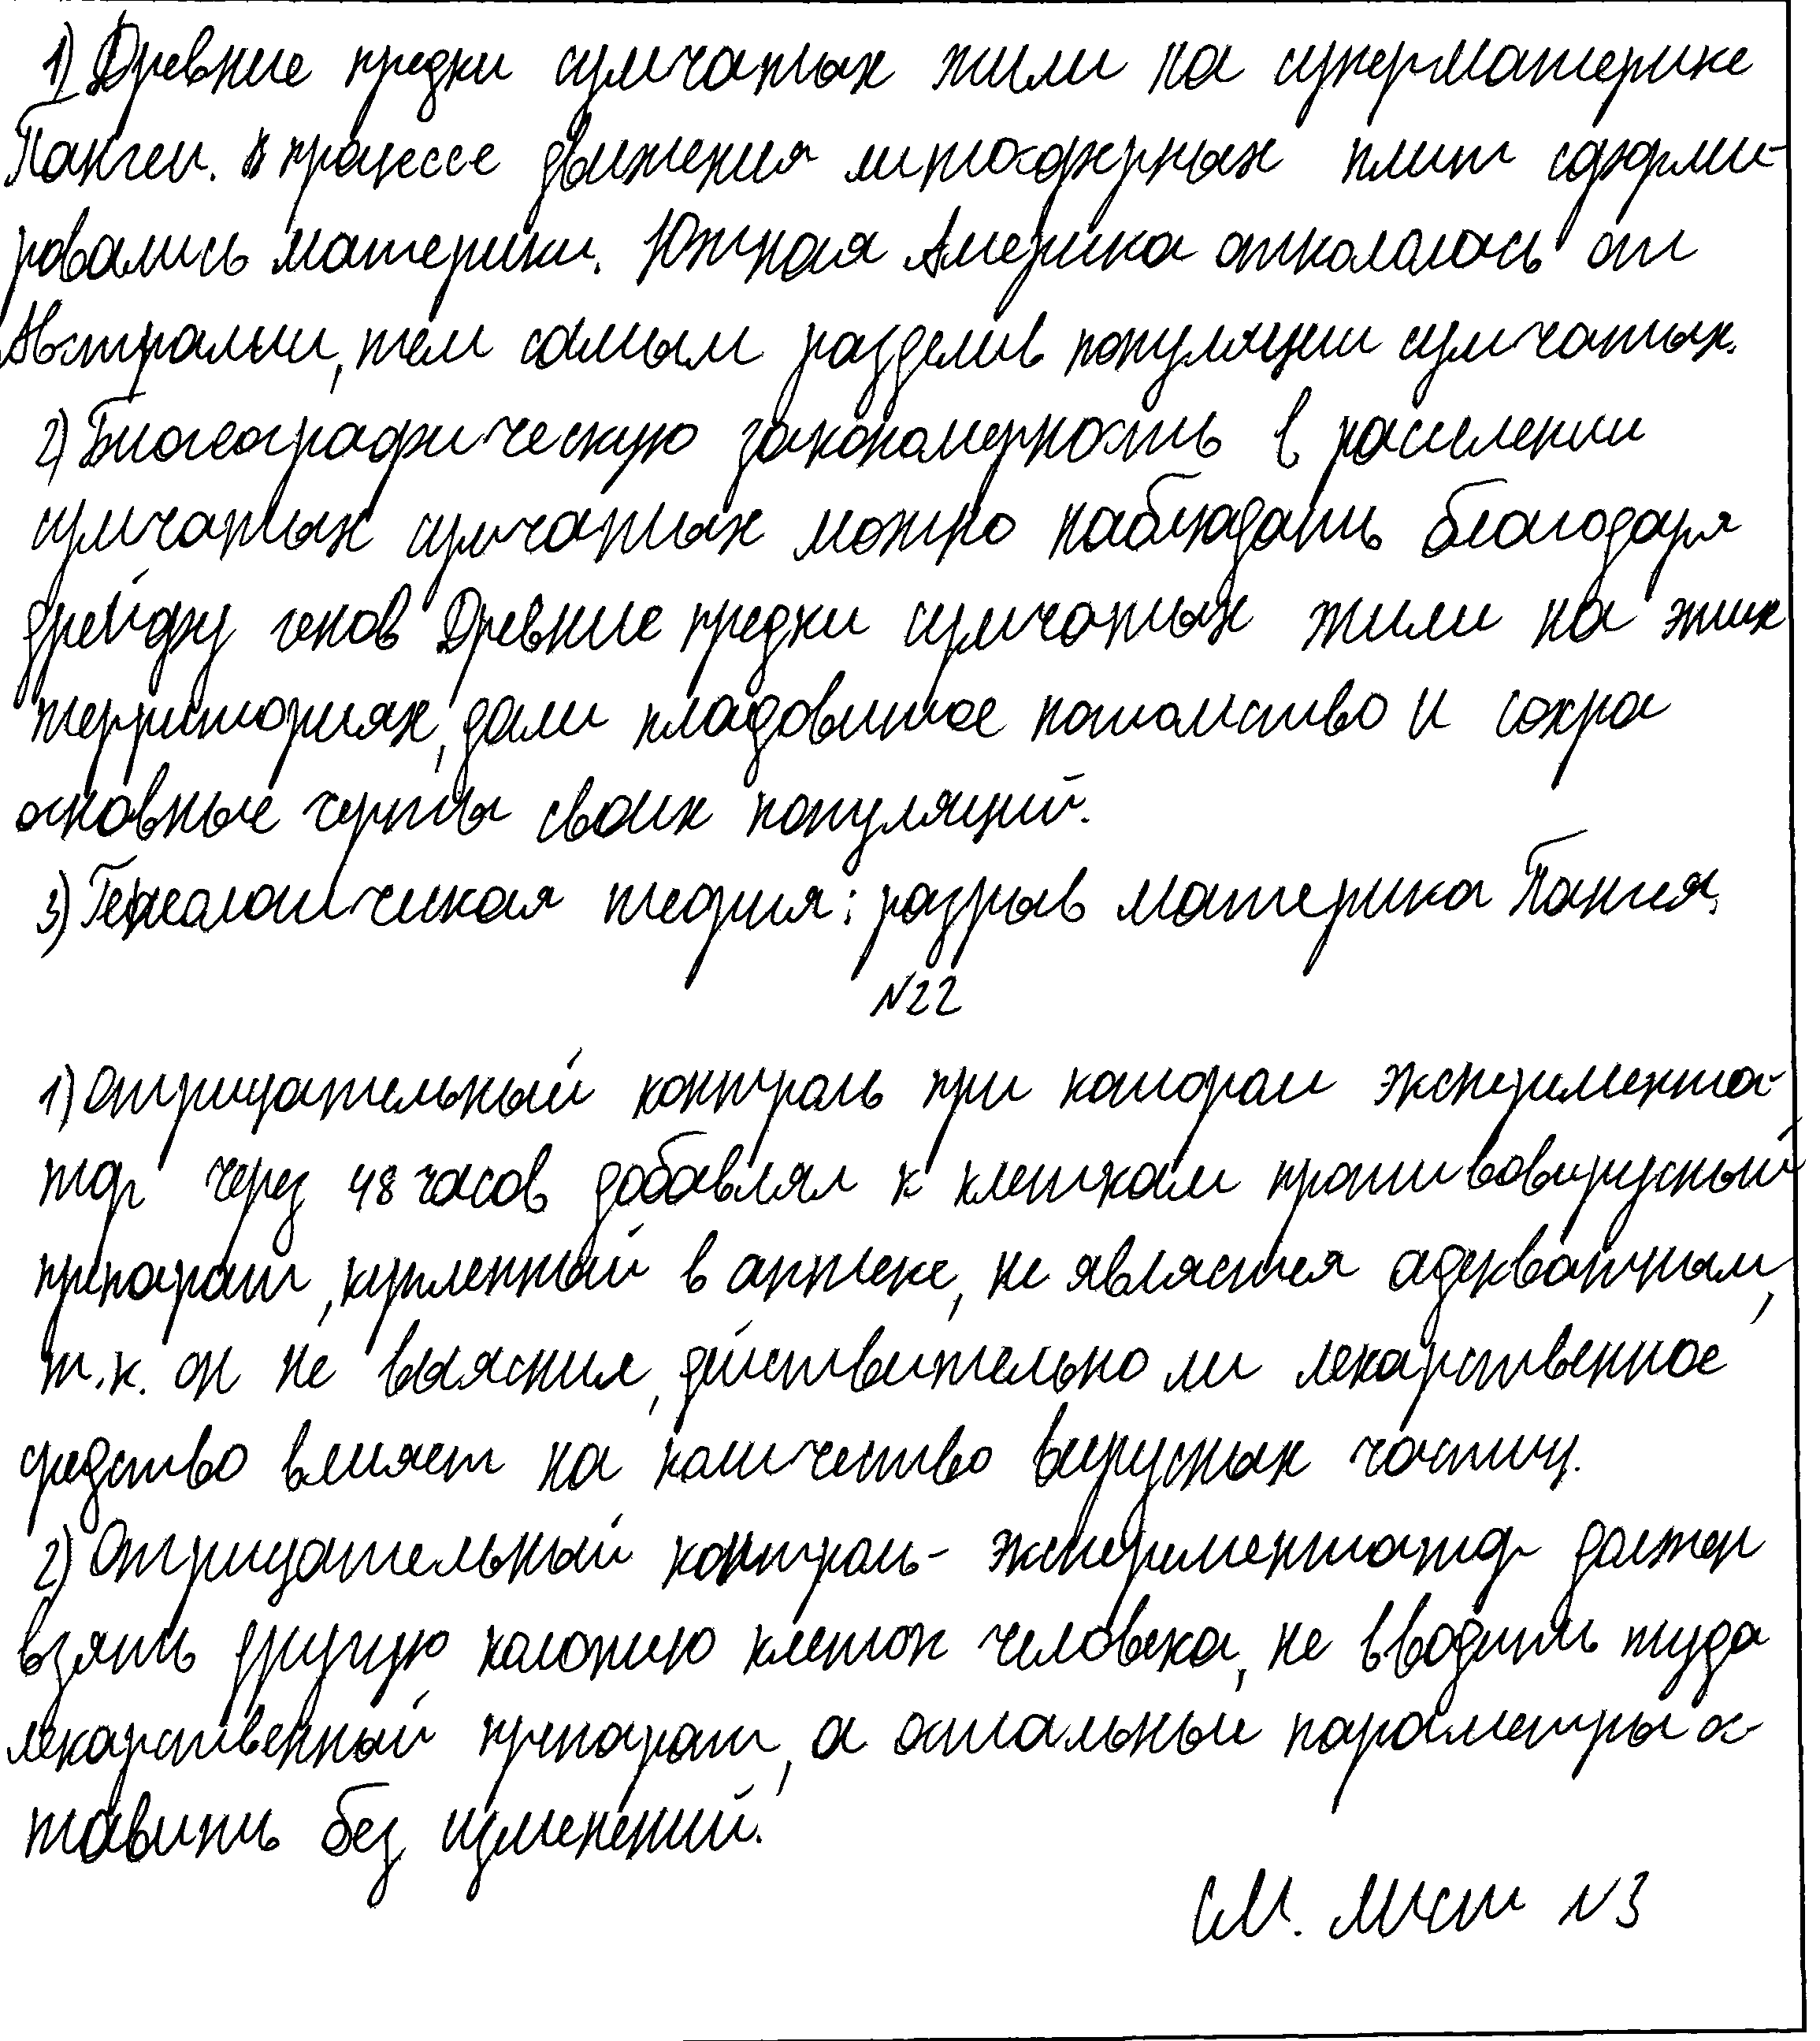 1) Древние предки сумчатых жили на суперматерике
Пангеи. В процессе движения литосферных плит сформи-
ровались материки. Южная Америка откололась от
Австралии, тем самым разделив популяции сумчатых.
2) Биогеографическую закономерность в расселении
сумчатых сумчатых можно наблюдать благодаря
дрейфу генов Древние предки сумчатых жили на этих
территориях, дали плодовитое потомство и сохра
основные черты своих популяций.
3) Генеалогическая теория: разрыв материка Пангея.
№22
1) Отрицательный контроль при котором экспериментa-
тор через 48 часов добавлял к клеткам противовирусный
препарат, купленный в аптеке, не является адекватным,
т.к. он не выяснил, действительно ли лекарственное
средство влияет на количество вирусных частиц.
2) Отрицательный контроль - экспериментатор должен
взять другую колонию клеток человека, не вводить туда
лекарственный препарат, а остальные параметры ос-
тавить без изменений.
см. лист №3